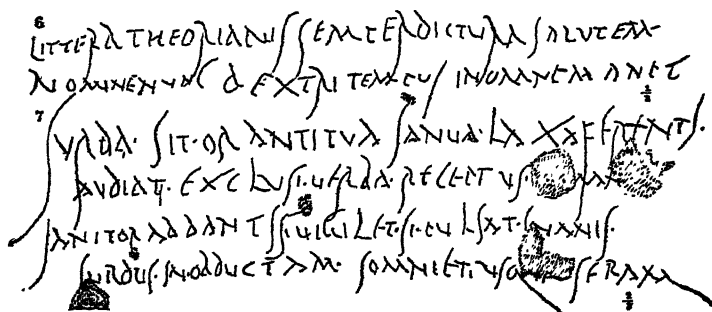 6 LITTERA THEORIANIS SEMPER DICTVRA SALVTEM
NOMINE NVNC DEXTRI TEMPVS IN OMNE MANET
7 SVRDA· SIT· ORANTI TVA IANVA· LAXA FERENTI·
AVDIAT· EXCLVSI· VERBA· RECEPTVS· AMANS
IANITOR AD DANTIS· VIGILET· SI· PVLSAT· INANIS·
SVRDVS· IN· OBDVCTAM· SOMNIET VSQVE SERAM